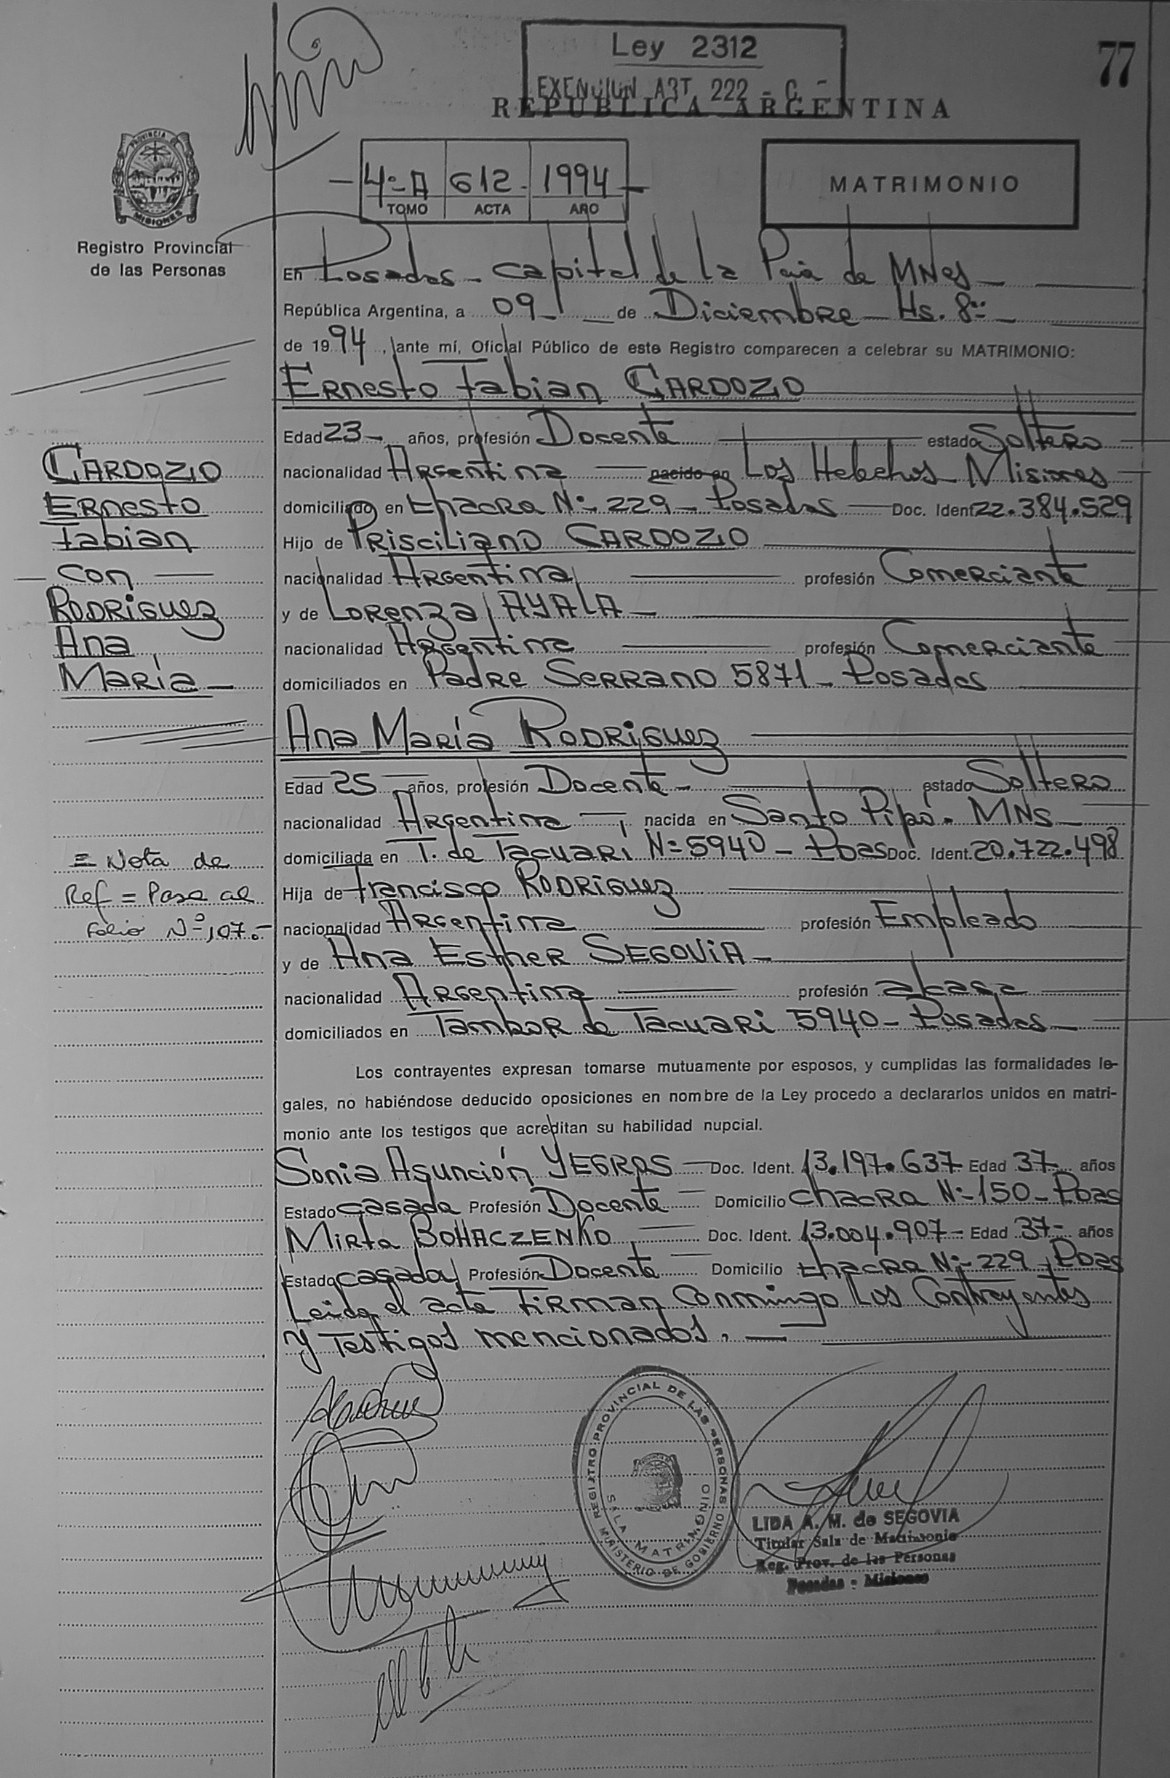 Ley 2312
EXENCION ART 222 - C. -
77
REPUBLICA ARGENTINA
PROVINCIA DE
MISIONES
Registro Provincial
de las Personas
4º A 612 - 1994
TOMO ACTA AÑO
MATRIMONIO
En Posadas - Capital de la Pcia de MNes
República Argentina, a 09 de Diciembre - Hs. 8
de 1994, ante mí, Oficial Público de este Registro comparecen a celebrar su MATRIMONIO:
Ernesto Fabian CARDOZO
Edad 23 - años, profesión Docente estado Soltero
nacionalidad Argentina nacido en Los Helechos Misiones
domiciliado en Chacra Nº 229 - Posadas Doc. Ident 22.384.529
Hijo de Prisciliano CARDOZO
nacionalidad Argentina profesión Comerciante
y de Lorenza AYALA -
nacionalidad Argentina profesión Comerciante
domiciliados en Padre Serrano 5871 - Posadas
CARDOZO
Ernesto
Fabian
- con -
RODRIGUEZ
Ana
María -
Ana María RODRIGUEZ
Edad 25 años, profesión Docente - estado Soltero
nacionalidad Argentina nacida en Santo Pipó - MNS -
domiciliada en T. de Tacuari Nº 5940 - Pdas Doc. Ident. 20.722.498
Hija de Francisco RODRIGUEZ
nacionalidad Argentina profesión Empleado
y de Ana Esther SEGOVIA -
nacionalidad Argentina profesión a/casa
domiciliados en Tambor de Tacuari 5940 - Posadas -
= Nota de
Ref = Pasa al
Folio Nº 107.-
Los contrayentes expresan tomarse mutuamente por esposos, y cumplidas las formalidades le-
gales, no habiéndose deducido oposiciones en nombre de la Ley procedo a declararlos unidos en matri-
monio ante los testigos que acreditan su habilidad nupcial.
Sonia Asunción YEGROS - Doc. Ident. 13.197.637 - Edad 37 - años
Estado casada Profesión Docente - Domicilio Chacra Nº 150 - Pdas
Mirta BOHACZENKO Doc. Ident. 13.004.907 - Edad 37 - años
Estado casada Profesión Docente Domicilio Chacra Nº 229 - Pdas
Leida el acta Firman Conmingo Los Contrayentes
Y Testigos mencionados. -
REGISTRO PROVINCIAL DE LAS PERSONAS
SALA MATRIMONIO
MINISTERIO DE GOBIERNO
LIDA A. M. de SEGOVIA
Titular Sala de Matrimonio
Reg. Prov. de las Personas
Posadas - Misiones